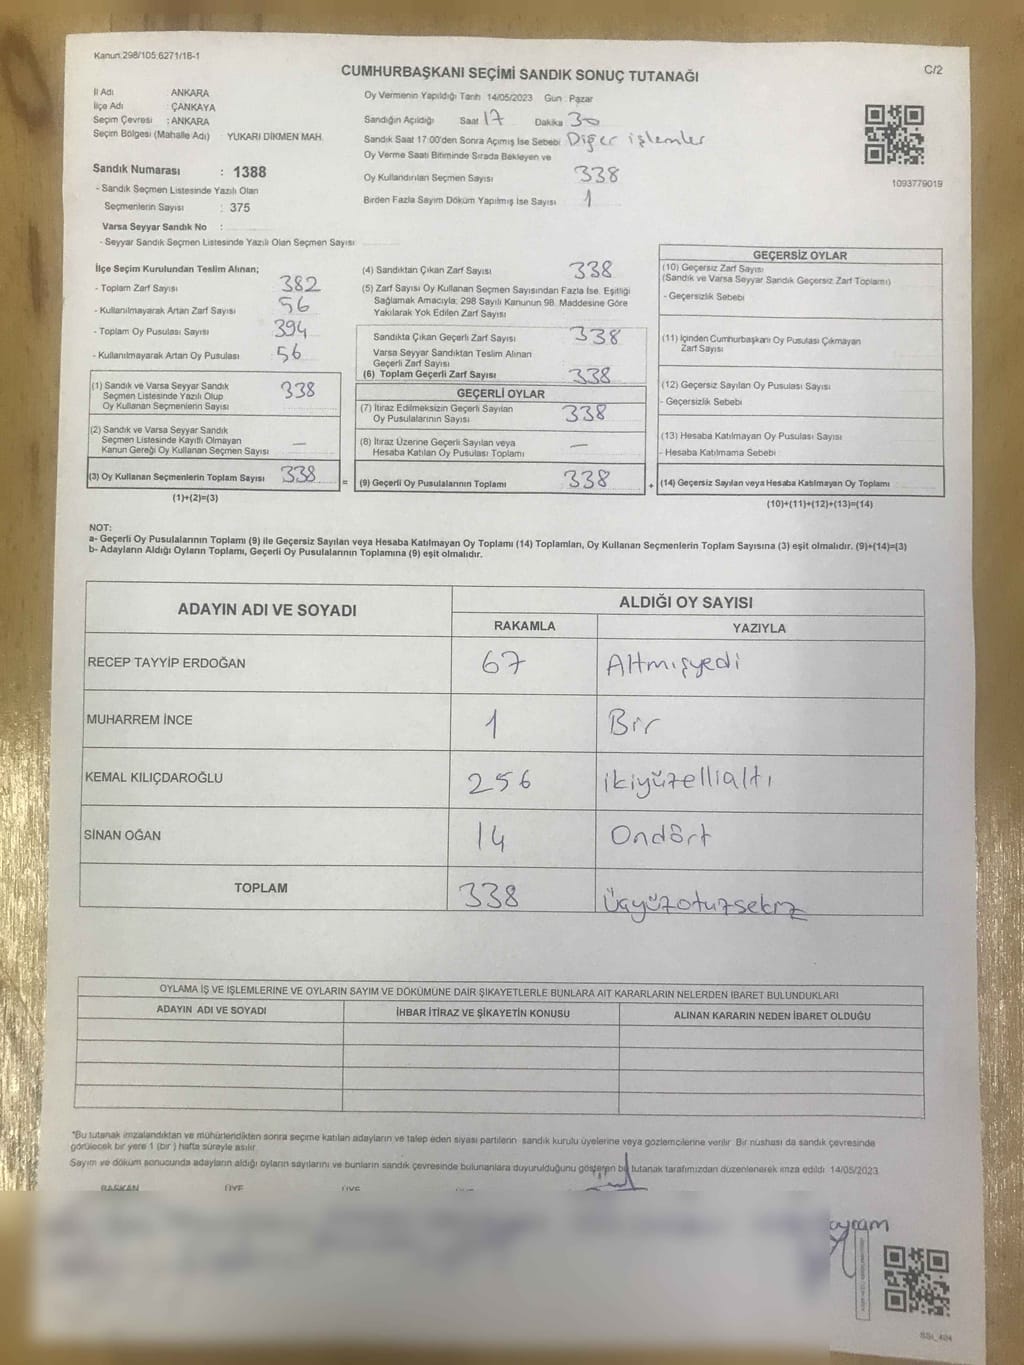 Kanun:298/105 6271/18-1
C/2
CUMHURBAŞKANI SEÇİMİ SANDIK SONUÇ TUTANAĞI
İl Adı ANKARA
İlçe Adı : ÇANKAYA
Seçim Çevresi : ANKARA
Seçim Bölgesi (Mahalle Adı) YUKARI DİKMEN MAH.
Sandık Numarası : 1388
- Sandık Seçmen Listesinde Yazılı Olan
Seçmenlerin Sayısı : 375
Varsa Seyyar Sandık No :
- Seyyar Sandık Seçmen Listesinde Yazılı Olan Seçmen Sayısı
Oy Vermenin Yapıldığı Tarih 14/05/2023 Gün : Pazar
Sandığın Açıldığı Saat 17 Dakika 30
Sandık Saat 17:00'den Sonra Açımış İse Sebebi Diğer işlemler
Oy Verme Saati Bitiminde Sırada Bekleyen ve
Oy Kullandırılan Seçmen Sayısı 338
Birden Fazla Sayım Döküm Yapılmış İse Sayısı 1
1093779019
İlçe Seçim Kurulundan Teslim Alınan;
- Toplam Zarf Sayısı 382
- Kullanılmayarak Artan Zarf Sayısı 56
- Toplam Oy Pusulası Sayısı 394
- Kullanılmayarak Artan Oy Pusulası 56
(1) Sandık ve Varsa Seyyar Sandık
Seçmen Listesinde Yazılı Olup
Oy Kullanan Seçmenlerin Sayısı 338
(2) Sandık ve Varsa Seyyar Sandık
Seçmen Listesinde Kayıtlı Olmayan
Kanun Gereği Oy Kullanan Seçmen Sayısı —
(3) Oy Kullanan Seçmenlerin Toplam Sayısı 338
(1)+(2)=(3)
=
(4) Sandıktan Çıkan Zarf Sayısı 338
(5) Zarf Sayısı Oy Kullanan Seçmen Sayısından Fazla İse, Eşitliği
Sağlamak Amacıyla; 298 Sayılı Kanunun 98. Maddesine Göre
Yakılarak Yok Edilen Zarf Sayısı
Sandıkta Çıkan Geçerli Zarf Sayısı 338
Varsa Seyyar Sandıktan Teslim Alınan
Geçerli Zarf Sayısı
(6) Toplam Geçerli Zarf Sayısı 338
GEÇERLİ OYLAR
(7) İtiraz Edilmeksizin Geçerli Sayılan
Oy Pusulalarının Sayısı 338
(8) İtiraz Üzerine Geçerli Sayılan veya
Hesaba Katılan Oy Pusulası Toplamı —
(9) Geçerli Oy Pusulalarının Toplamı 338
+
GEÇERSİZ OYLAR
(10) Geçersiz Zarf Sayısı
(Sandık ve Varsa Seyyar Sandık Geçersiz Zarf Toplamı)
- Geçersizlik Sebebi
(11) İçinden Cumhurbaşkanı Oy Pusulası Çıkmayan
Zarf Sayısı
(12) Geçersiz Sayılan Oy Pusulası Sayısı
- Geçersizlik Sebebi
(13) Hesaba Katılmayan Oy Pusulası Sayısı
- Hesaba Katılmama Sebebi
(14) Geçersiz Sayılan veya Hesaba Katılmayan Oy Toplamı
(10)+(11)+(12)+(13)=(14)
NOT:
a- Geçerli Oy Pusulalarının Toplamı (9) ile Geçersiz Sayılan veya Hesaba Katılmayan Oy Toplamı (14) Toplamları, Oy Kullanan Seçmenlerin Toplam Sayısına (3) eşit olmalıdır. (9)+(14)=(3)
b- Adayların Aldığı Oyların Toplamı, Geçerli Oy Pusulalarının Toplamına (9) eşit olmalıdır.
ADAYIN ADI VE SOYADI ALDIĞI OY SAYISI
RAKAMLA YAZIYLA
RECEP TAYYİP ERDOĞAN 67 Altmışyedi
MUHARREM İNCE 1 Bir
KEMAL KILIÇDAROĞLU 256 ikiyüzellialtı
SİNAN OĞAN 14 Ondört
TOPLAM 338 Üçyüzotuzsekiz
OYLAMA İŞ VE İŞLEMLERİNE VE OYLARIN SAYIM VE DÖKÜMÜNE DAİR ŞİKAYETLERLE BUNLARA AİT KARARLARIN NELERDEN İBARET BULUNDUKLARI
ADAYIN ADI VE SOYADI İHBAR İTİRAZ VE ŞİKAYETİN KONUSU ALINAN KARARIN NEDEN İBARET OLDUĞU
*Bu tutanak imzalandıktan ve mühürlendikten sonra seçime katılan adayların ve talep eden siyasi partilerin sandık kurulu üyelerine veya gözlemcilerine verilir. Bir nüshası da sandık çevresinde
görülecek bir yere 1 (bir ) hafta süreyle asılır.
Sayım ve döküm sonucunda adayların aldığı oyların sayılarını ve bunların sandık çevresinde bulunanlara duyurulduğunu gösteren bu tutanak tarafımızdan düzenlenerek imza edildi. 14/05/2023
BAŞKAN ÜYE ÜYE